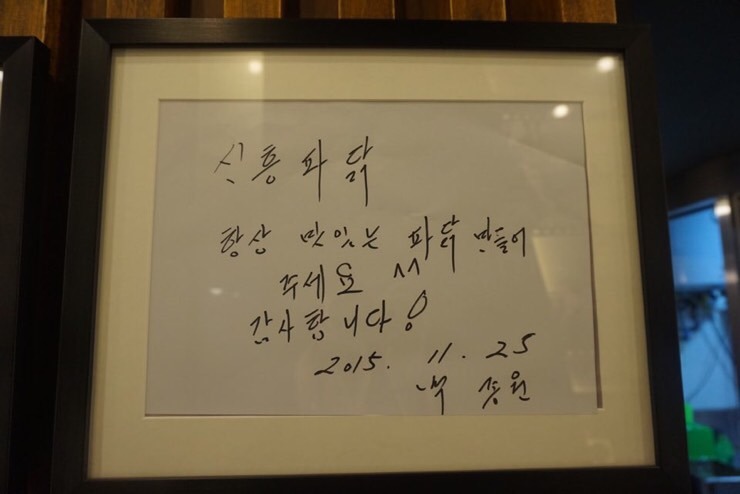 신흥파닭
항상 맛있는 파닭 만들어
주세요 ^^
감사합니다!
2015. 11. 25
승원